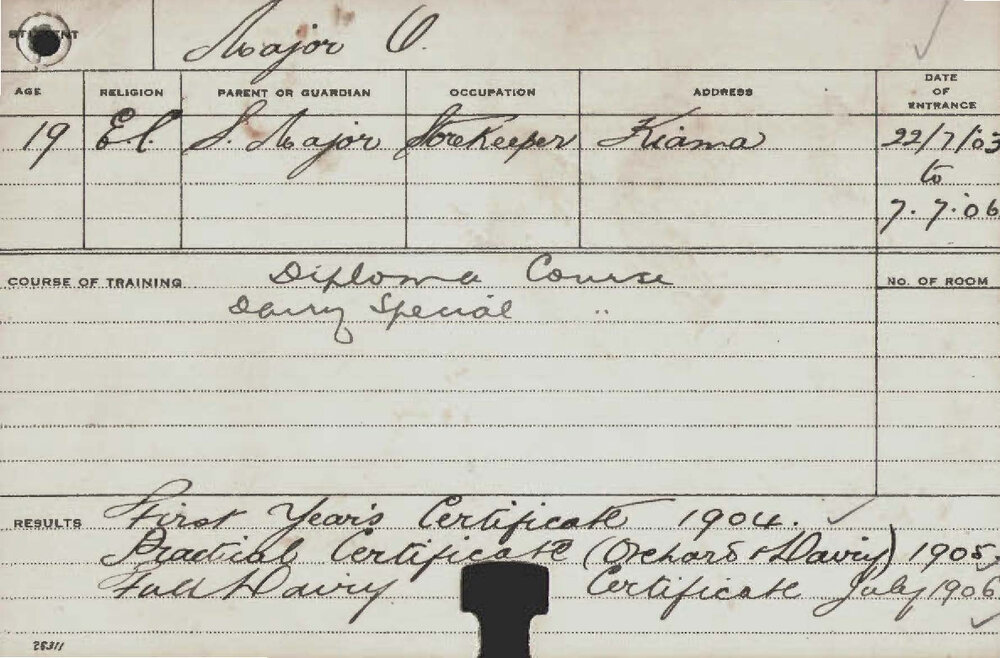 STUDENT Major O.
AGE RELIGION PARENT OR GUARDIAN OCCUPATION ADDRESS DATE OF ENTRANCE
19 E.C. S. Major Storekeeper Kiama 22/7/03
to
7.7.06
COURSE OF TRAINING Diploma Course NO. OF ROOM
Dairy Special "
RESULTS First Year's Certificate 1904.
Practical Certificate (Orchard & Dairy) 1905
Full Dairy Certificate July 1906
28311